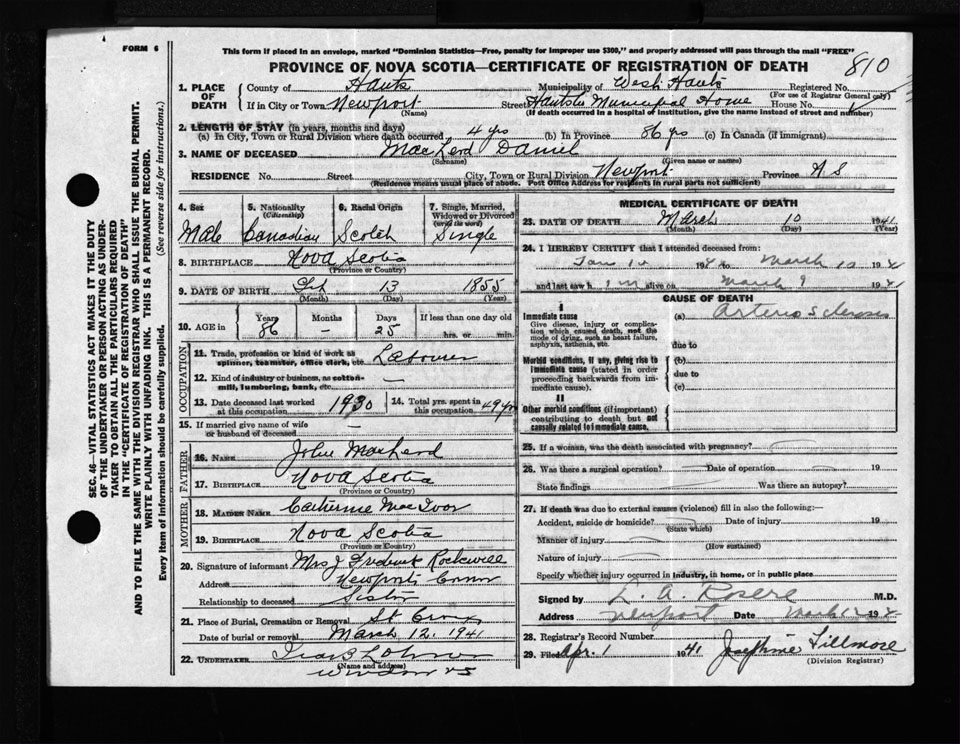 FORM 6
This form if placed in an envelope, marked "Dominion Statistics—Free, penalty for improper use $300," and properly addressed will pass through the mail "FREE"
PROVINCE OF NOVA SCOTIA—CERTIFICATE OF REGISTRATION OF DEATH
810
1. PLACE OF DEATH
County of Hants Municipality of West Hants Registered No.
(For use of Registrar General only)
If in City or Town Newport Street Hants Co Municipal Home House No.
(Name) (If death occurred in a hospital or institution, give the name instead of street and number)
2. LENGTH OF STAY (in years, months and days)
(a) In City, Town or Rural Division where death occurred 4 yrs (b) In Province 86 yrs (c) In Canada (if immigrant)
3. NAME OF DECEASED MacLeod Daniel
(Surname) (Given name or names)
RESIDENCE No. Street City, Town or Rural Division Newport Province N S
(Residence means usual place of abode. Post Office Address for residents in rural parts not sufficient)
4. Sex Male
5. Nationality (Citizenship) Canadian
6. Racial Origin Scotch
7. Single, Married, Widowed or Divorced (write the word) Single
8. BIRTHPLACE Nova Scotia
(Province or Country)
9. DATE OF BIRTH 13 1855
(Month) (Day) (Year)
10. AGE in Years Months Days If less than one day old
86 — 25 hrs. or min.
OCCUPATION
11. Trade, profession or kind of work as spinner, teamster, office clerk, etc. Labourer
12. Kind of industry or business, as cotton-mill, lumbering, bank, etc. —
13. Date deceased last worked at this occupation 1930
14. Total yrs. spent in this occupation 49 yrs
15. If married give name of wife or husband of deceased —
FATHER
16. Name John MacLeod
17. Birthplace Nova Scotia
(Province or Country)
MOTHER
18. Maiden Name Catherine MacIvor
19. Birthplace Nova Scotia
(Province or Country)
20. Signature of informant Mrs J Frederick Rockwell
Address Newport Corner
Relationship to deceased Sister
21. Place of Burial, Cremation or Removal St Croix
Date of burial or removal March 12, 1941
22. UNDERTAKER
(Name and address)
Windsor NS
MEDICAL CERTIFICATE OF DEATH
23. DATE OF DEATH March 10 1941
(Month) (Day) (Year)
24. I HEREBY CERTIFY that I attended deceased from:
194 to March 10 194
and last saw him alive on March 9 1941
CAUSE OF DEATH
I
Immediate cause
Give disease, injury or complication which caused death, not the mode of dying, such as heart failure, asphyxia, asthenia, etc.
(a) Arterio Sclerosis
due to
Morbid conditions, if any, giving rise to immediate cause (stated in order proceeding backwards from immediate cause).
(b)
due to
(c)
II
Other morbid conditions (if important) contributing to death but not causally related to immediate cause.
25. If a woman, was the death associated with pregnancy?
26. Was there a surgical operation? Date of operation 19
State findings Was there an autopsy?
27. If death was due to external causes (violence) fill in also the following:—
Accident, suicide or homicide? Date of injury 19
(State which)
Manner of injury
(How sustained)
Nature of injury
Specify whether injury occurred in industry, in home, or in public place
Signed by M.D.
Address Newport Date March 194
28. Registrar's Record Number
29. Filed Apr. 1 1941 Josephine Fillmore
(Division Registrar)
SEC. 46—VITAL STATISTICS ACT MAKES IT THE DUTY
OF THE UNDERTAKER OR PERSON ACTING AS UNDER-
TAKER TO OBTAIN ALL THE PARTICULARS REQUIRED
IN THE "CERTIFICATE OF REGISTRATION OF DEATH"
AND TO FILE THE SAME WITH THE DIVISION REGISTRAR WHO SHALL ISSUE THE BURIAL PERMIT.
WRITE PLAINLY WITH UNFADING INK. THIS IS A PERMANENT RECORD.
Every item of information should be carefully supplied. (See reverse side for instructions.)